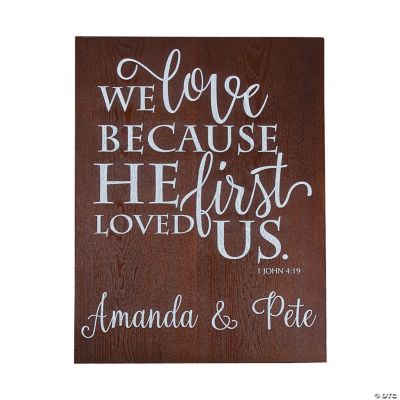 WE love
BECAUSE
HE first
LOVED US.
1 JOHN 4:19
Amanda & Pete
© OTC